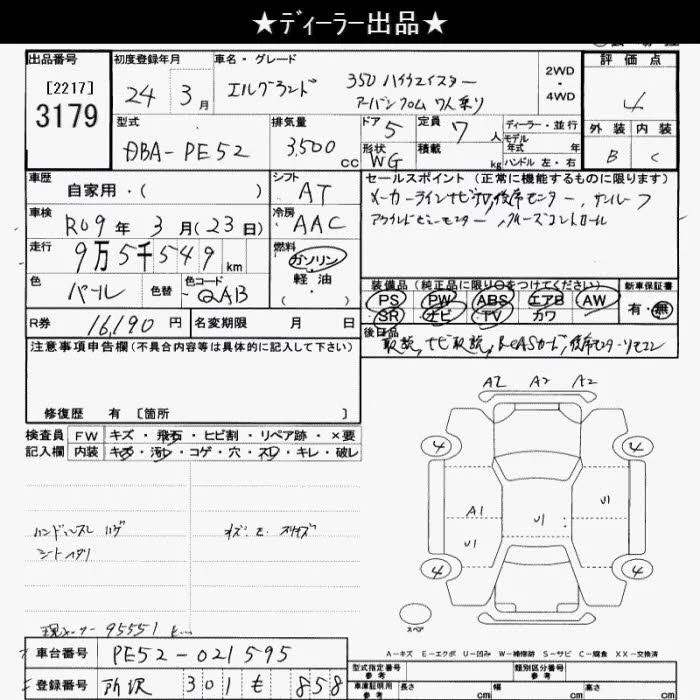 ★ディーラー出品★
出品番号 [2217] 3179
初度登録年月 24年 3月
車名・グレード エルグランド 350 ハイウェイスター
アーバンクロム 7人乗り
2WD・4WD
評価点 4
外装 B 内装 C
型式 DBA-PE52
排気量 3,500 cc
ドア 5 形状 WG
定員 7 人 積載 kg
ディーラー・並行
モデル年式 年
ハンドル 左・右
車歴 自家用・( )
シフト AT
車検 R09年 3月(23日)
冷房 AAC
走行 9万5千549 km
燃料 ガソリン・軽油
色 パール 色替 色コード QAB
R券 16,190円 名変期限 月 日
セールスポイント (正常に機能するものに限ります)
メーカーラインナビTV,後席モニター,サンルーフ
アラウンドビューモニター,クルーズコントロール
装備品(純正品に限り○をつけてください) 新車保証書
PS PW ABS エアB AW 有・無
SR ナビ TV カワ
後日品
取説,ナビ取説,B-CASカード,後席モニターリモコン
注意事項申告欄(不具合内容等は具体的に記入して下さい)
修復歴 有 〔箇所 〕
検査員 FW キズ・飛石・ヒビ割・リペア跡・×要
記入欄 内装 キズ・汚レ・コゲ・穴・スレ・キレ・破レ
ハンドルスレ ハゲ
シートヘタリ
現メーター 95551 km
車台番号 PE52-021595
登録番号 所沢 301 も 858
A2 A2 A2
4 4
A1 U1 U1
U1
4 4
スペア
A-キズ E-エクボ U-凹み W-補修跡 S-サビ C-腐食 XX-交換済
型式指定番号 参考 類別区分番号 参考
車庫証明用 参考 長さ cm 幅 cm 高さ cm